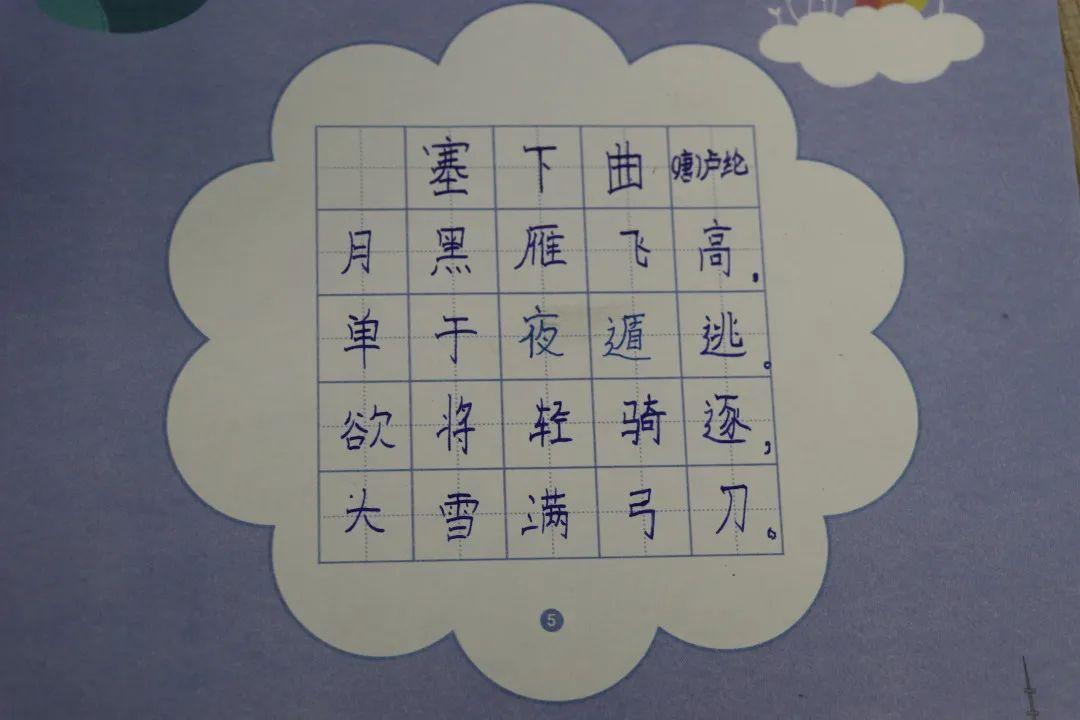 塞下曲(唐)卢纶
月黑雁飞高，
单于夜遁逃。
欲将轻骑逐，
大雪满弓刀。
5